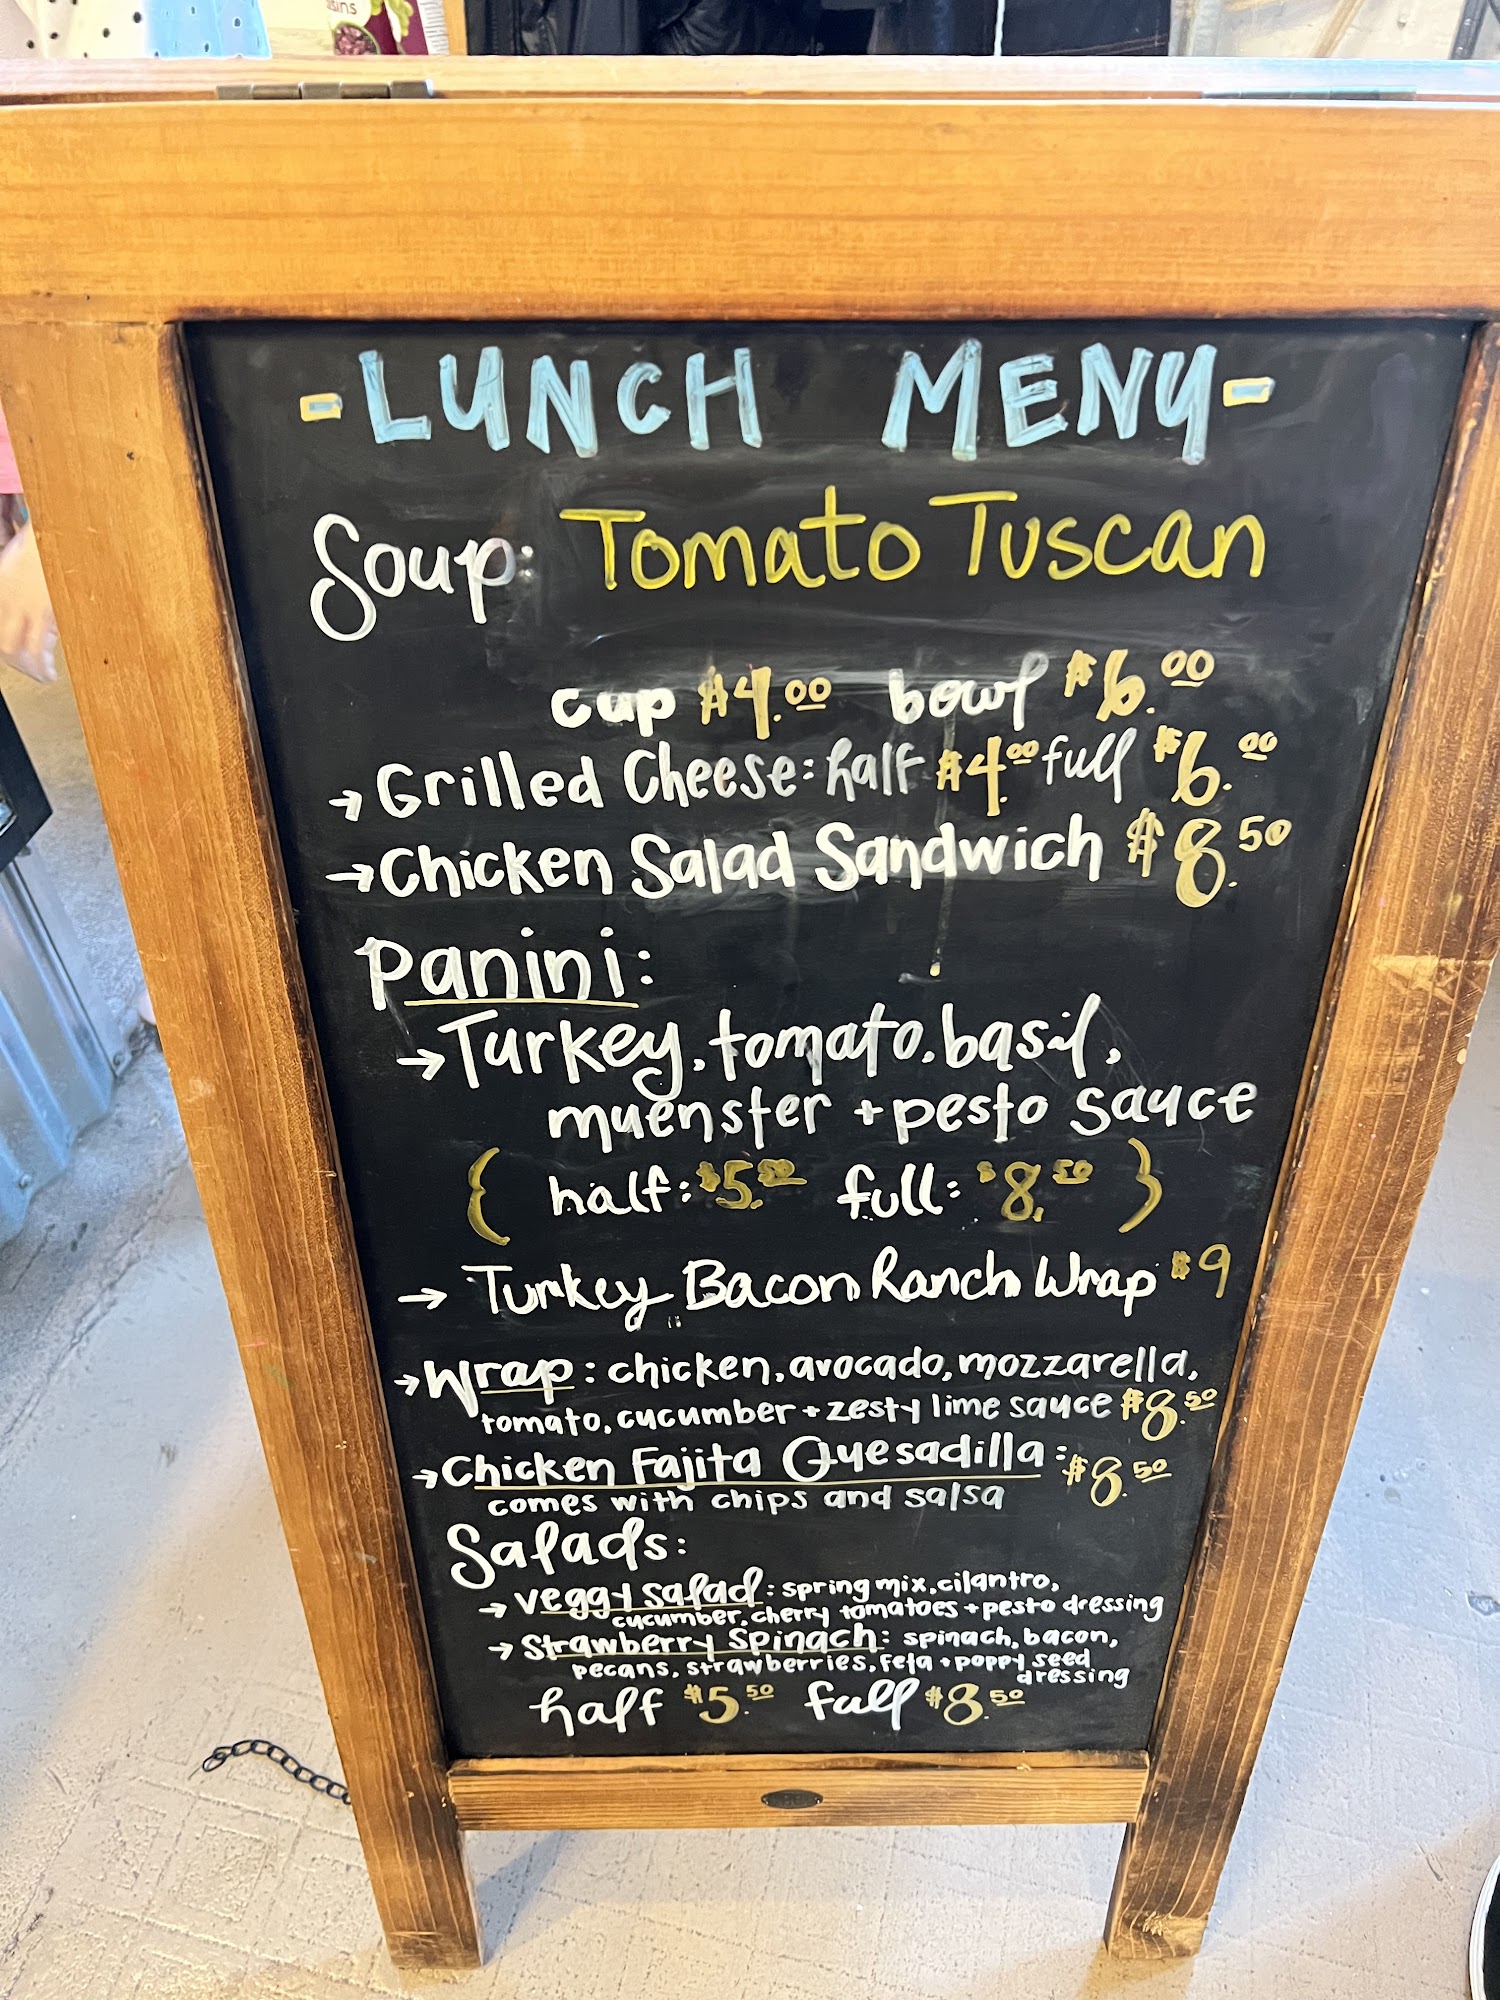 isins
-LUNCH MENU-
Soup: Tomato Tuscan
cup $4.00 bowl $6.00
→ Grilled Cheese: half $4.00 full $6.00
→ Chicken Salad Sandwich $8.50
Panini:
→ Turkey, tomato, basil,
muenster + pesto sauce
{ half: $5.50 full: $8.50 }
→ Turkey Bacon Ranch Wrap $9
→ Wrap: chicken, avocado, mozzarella,
tomato, cucumber + zesty lime sauce $8.50
→ Chicken Fajita Quesadilla: $8.50
comes with chips and salsa
Salads:
→ veggy salad: spring mix, cilantro,
cucumber, cherry tomatoes + pesto dressing
→ Strawberry Spinach: spinach, bacon,
pecans, strawberries, feta + poppy seed
dressing
half $5.50 full $8.50